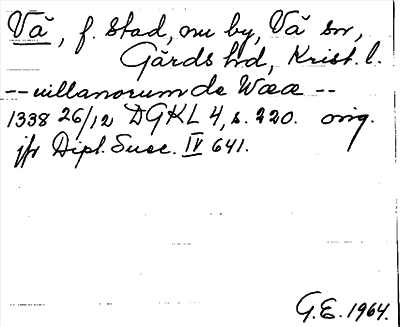 Vä, f. stad, nu by, Vä sn,
Gärds hd, Krist. l.
-- uillanorum de Wææ --
1338 26/12 DGKL 4, s. 220. orig.
jfr Dipl. Suec. IV 641.
G.E. 1964.